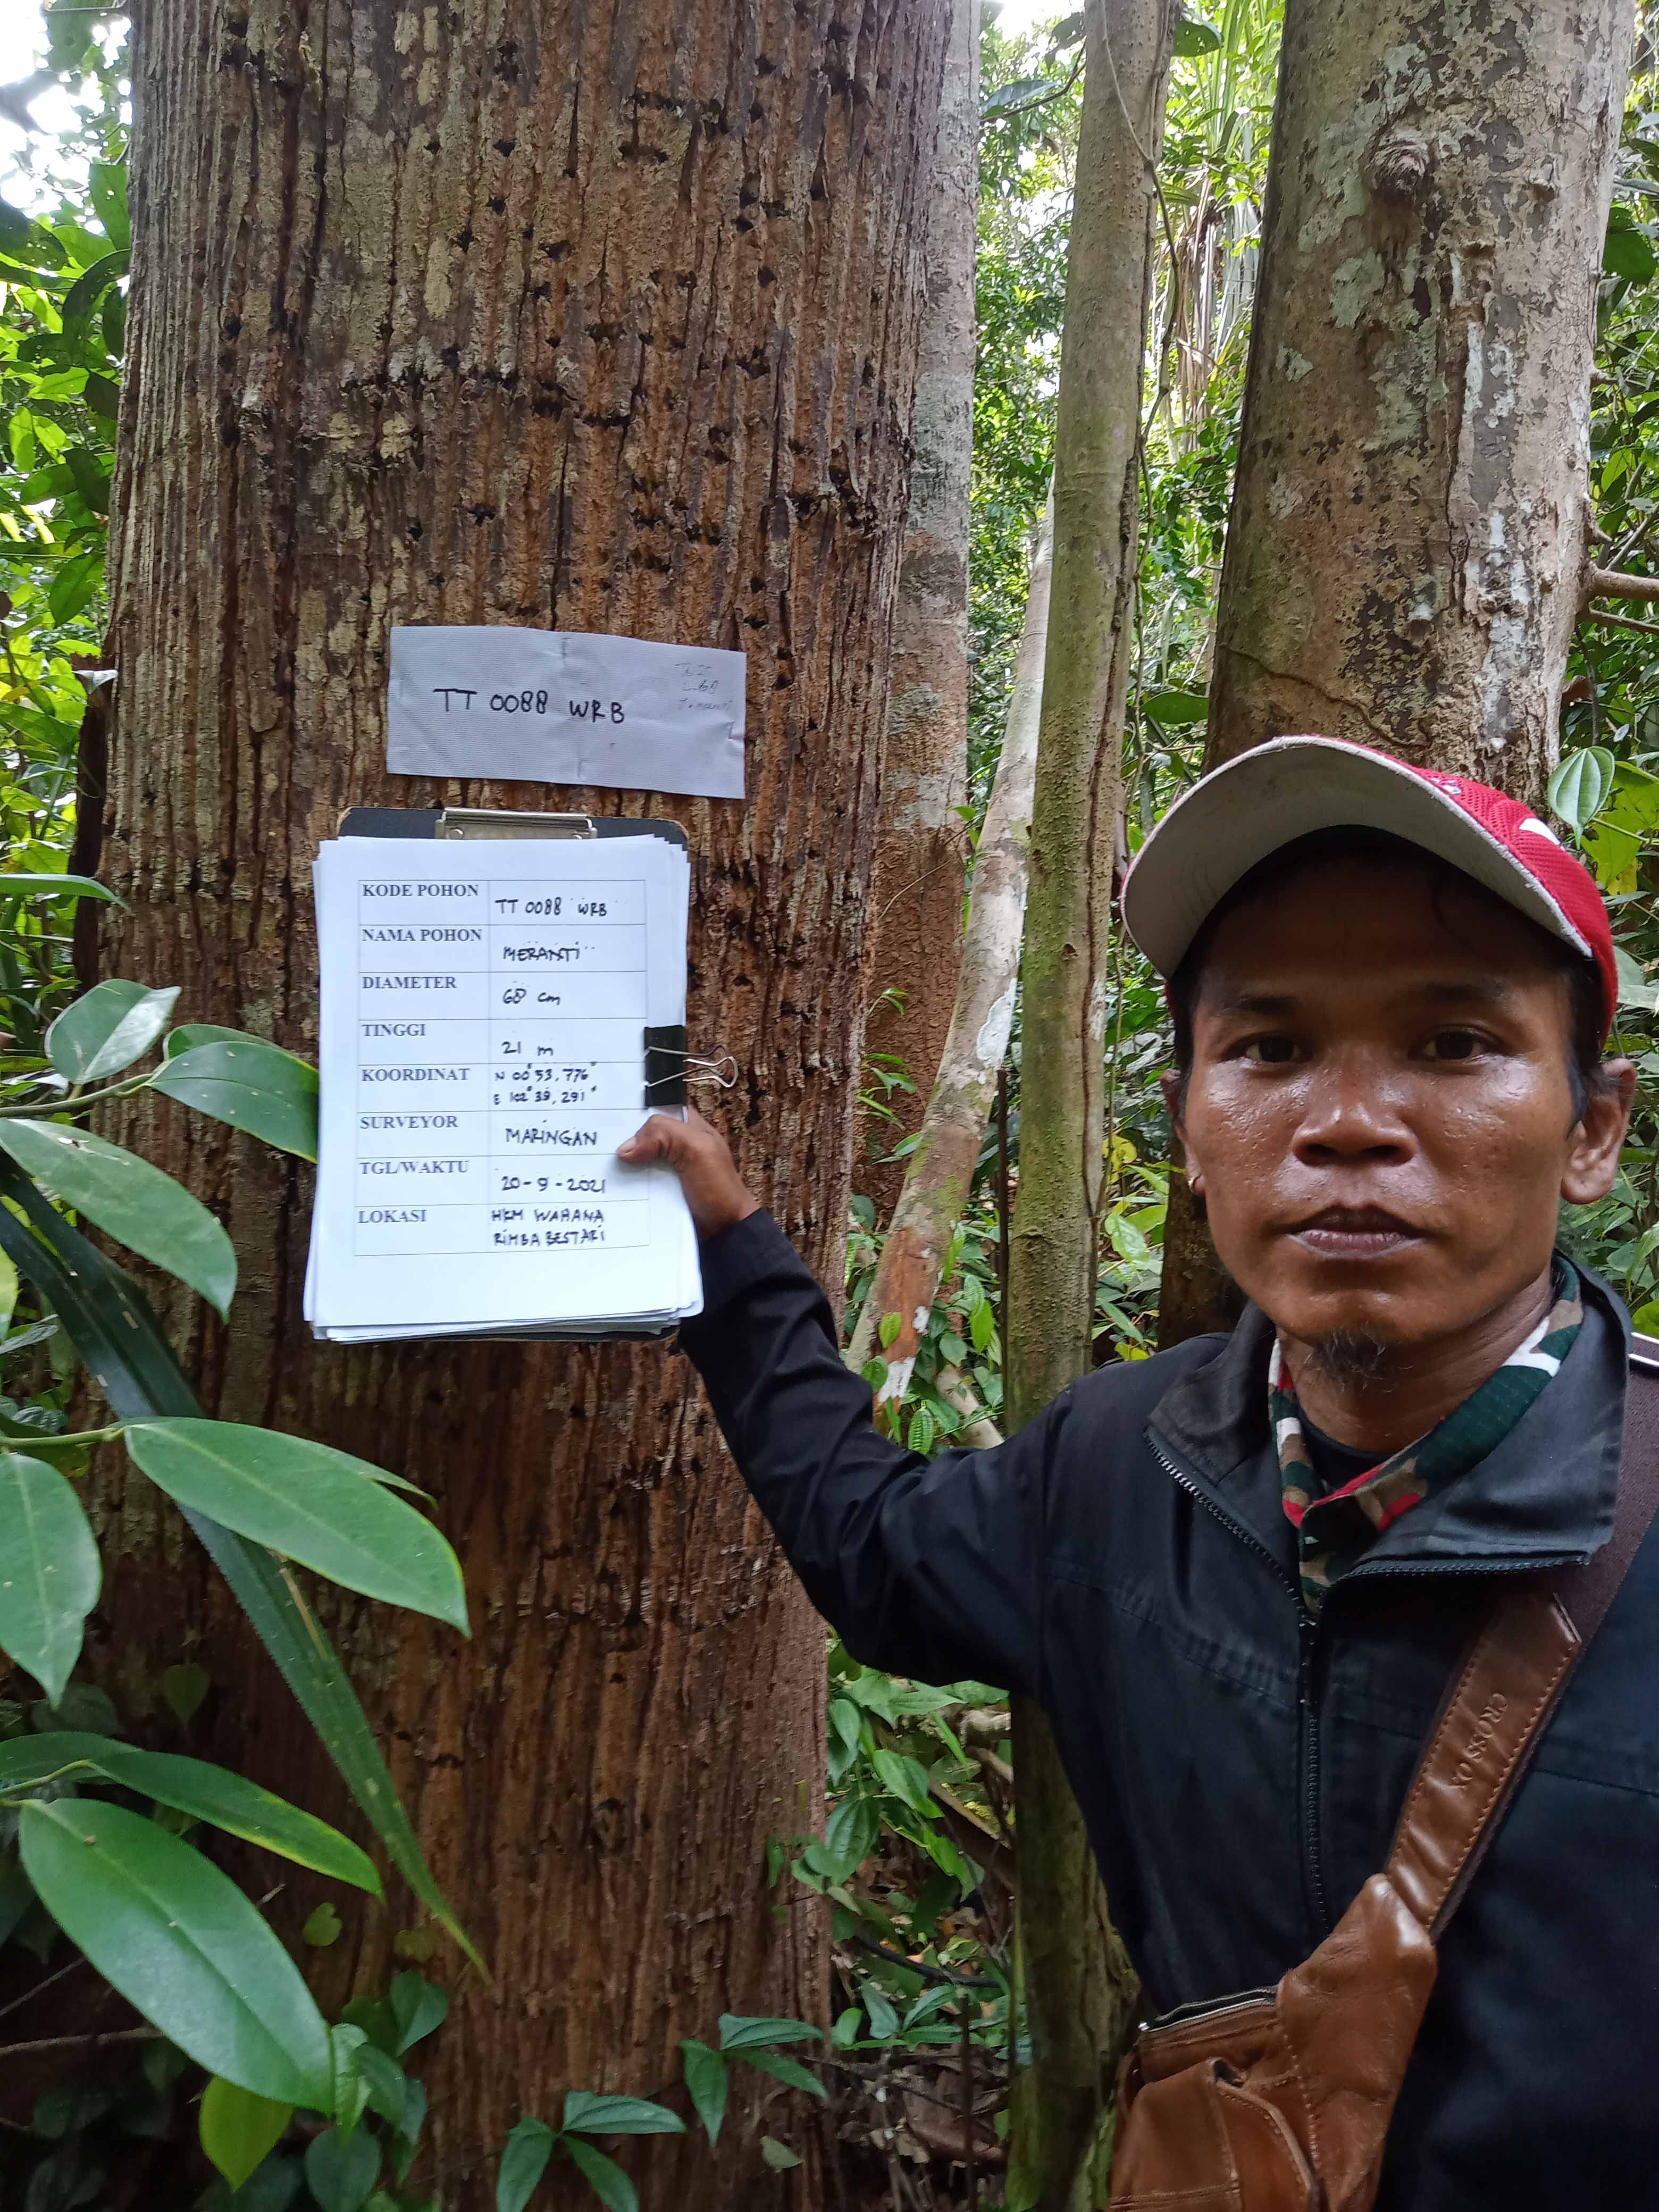 TT 0088 WRB
KODE POHON TT 0088 WRB
NAMA POHON MERANTI
DIAMETER 68 cm
TINGGI 21 m
KOORDINAT N 00° 53, 776"
E 102° 39, 291"
SURVEYOR MARINGAN
TGL/WAKTU 20-9-2021
LOKASI HKM WAHANA
RIMBA BESTARI
CROSSOX